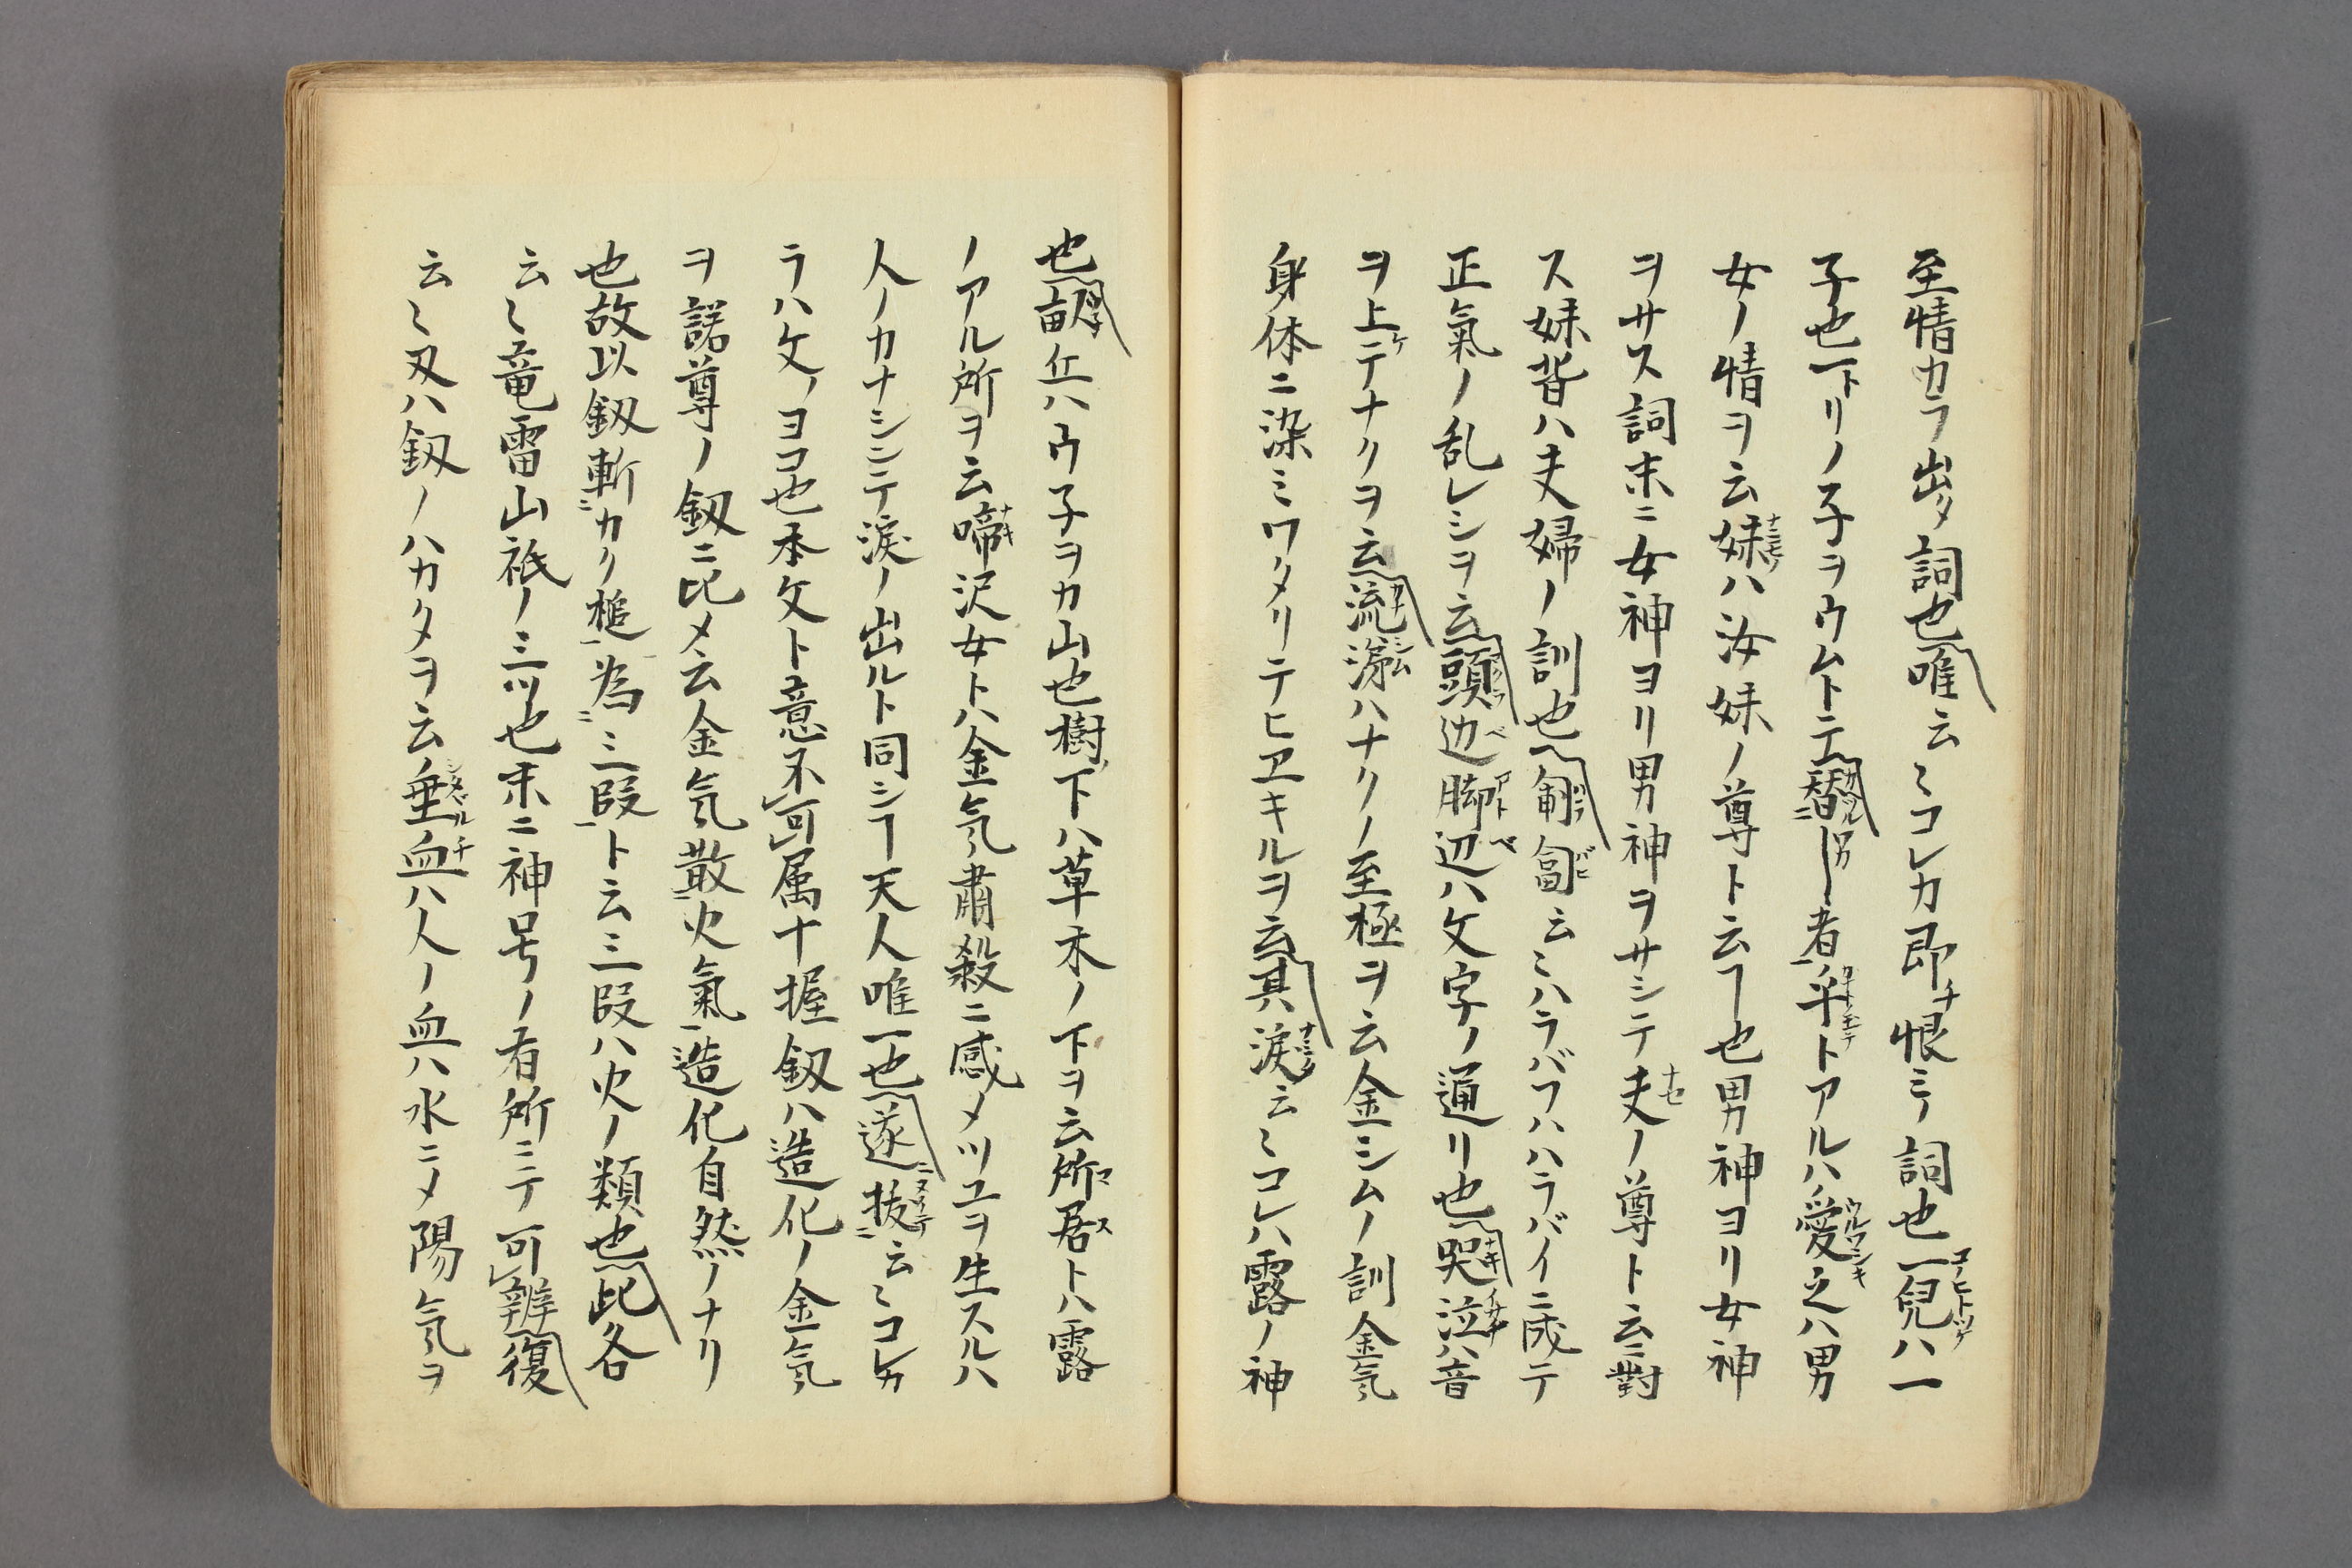 至情カラ出タ詞也唯云〻コレカ即チ恨ミノ詞也一兒ハ一
子也一トリノ子ヲウムトテ替ニ我者乎トアルハ愛之ハ男
女ノ情ヲ云妹ハ汝妹ノ尊ト云ヿ也男神ヨリ女神
ヲサス詞末ニ女神ヨリ男神ヲサシテ夫ノ尊ト云對
ス妹背ハ夫婦ノ訓也匍匐云〻ハラバフハハラバイニ成テ
正氣ノ乱レシヲ云頭辺脚辺ハ文字ノ通リ也哭泣ハ音
ヲ上ケテナクヲ云流涕ハナクノ至極ヲ云金シムノ訓金気
身体ニ染ミワタリテヒヱキルヲ云其涙云〻コレハ露ノ神
也畝丘ハウ子ヲカ山也樹下ハ草木ノ下ヲ云所居トハ露
ノアル所ヲ云啼沢女トハ金気肅殺ニ感メツユヲ生スルハ
人ノカナシンテ涙ノ出ルト同シヿ天人唯一也遂ニ抜云〻コレカ
ラハ文ノヨコ也本文ト意不可属十握釼ハ造化ノ金気
ヲ諾尊ノ釼ニ比メ云金気散火氣造化自然ノナリ
也故以釼斬カクツ槌為三段ト云三段ハ火ノ類也此各
云〻竜雷山祇ノ三ツ也末ニ神号ノ有所ニテ可辨復
云〻刄ハ釼ノハカタヲ云垂血ハ人ノ血ハ水ニメ陽気ヲ